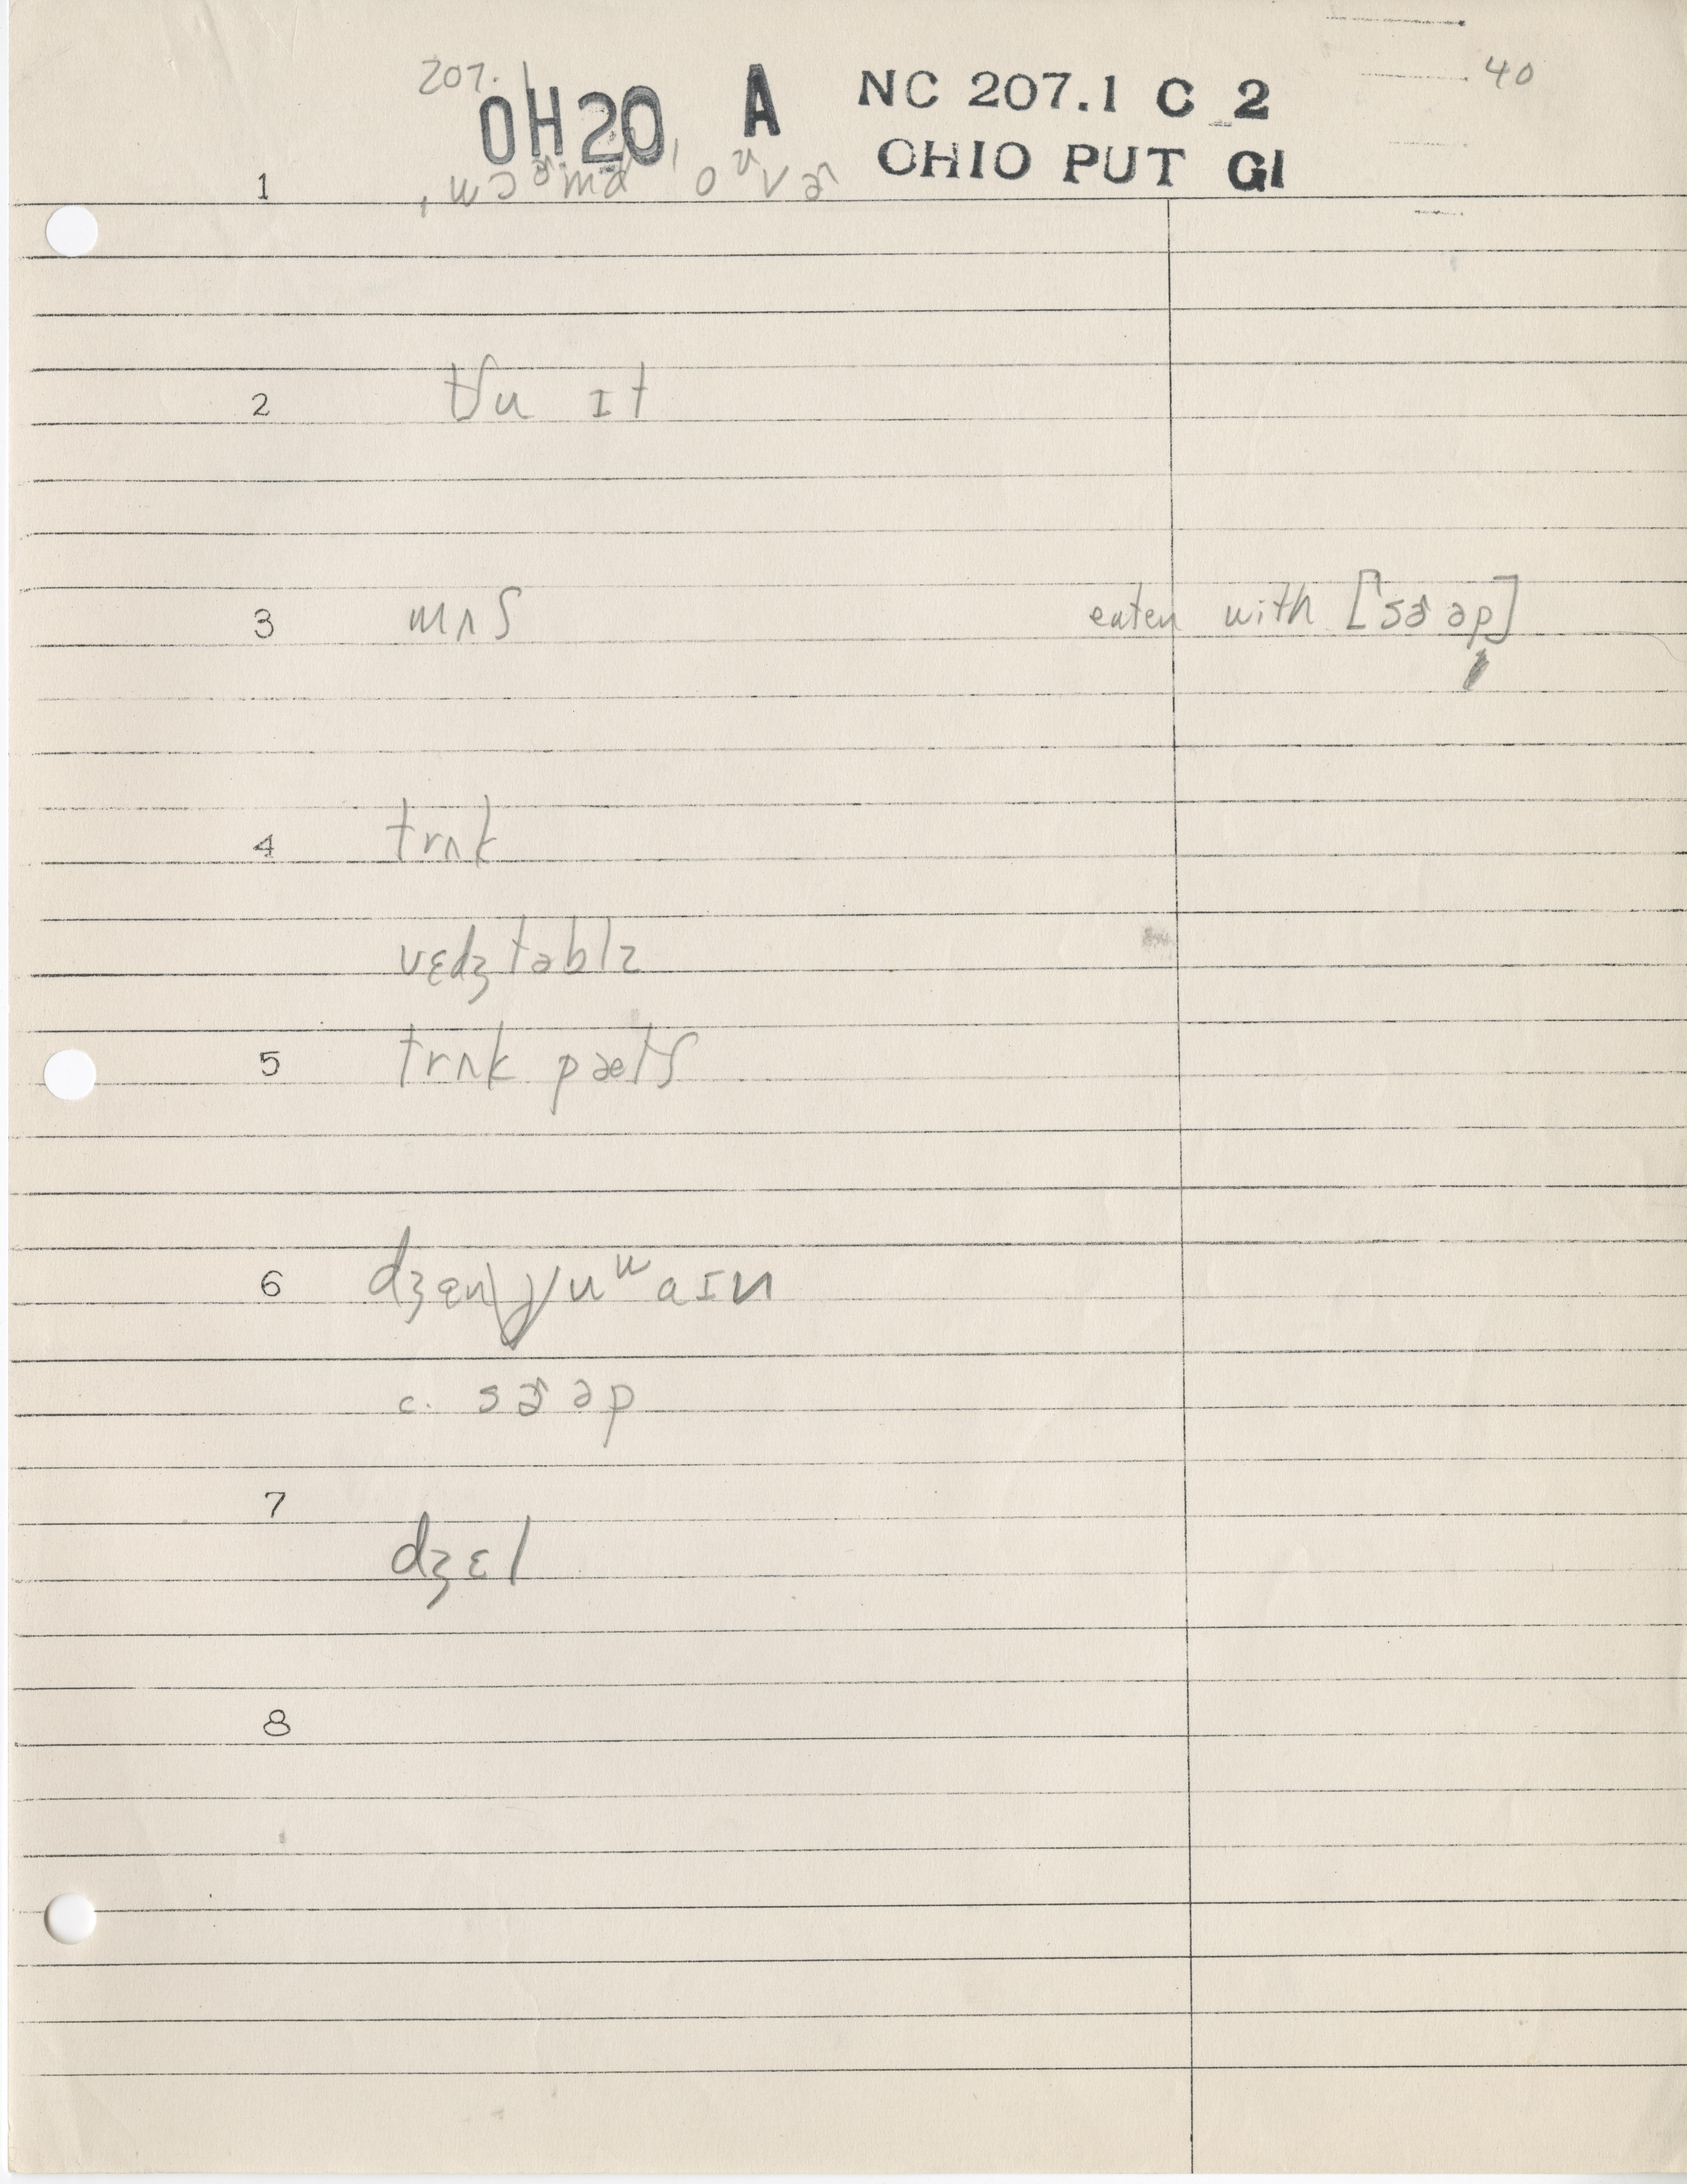 207. OH20 A NC 207.1 C 2 40
OHIO PUT GI
1 ˌwɔɚmdˈoᵘvɚ
2 tʃu ɪt
3 mʌʃ eaten with [sɚəp]
4 trʌk
vɛdʒtəblz
5 trʌk pætʃ
6 dʒɛnjuʷaɪn
c. sɚəp
7
dʒɛl
8